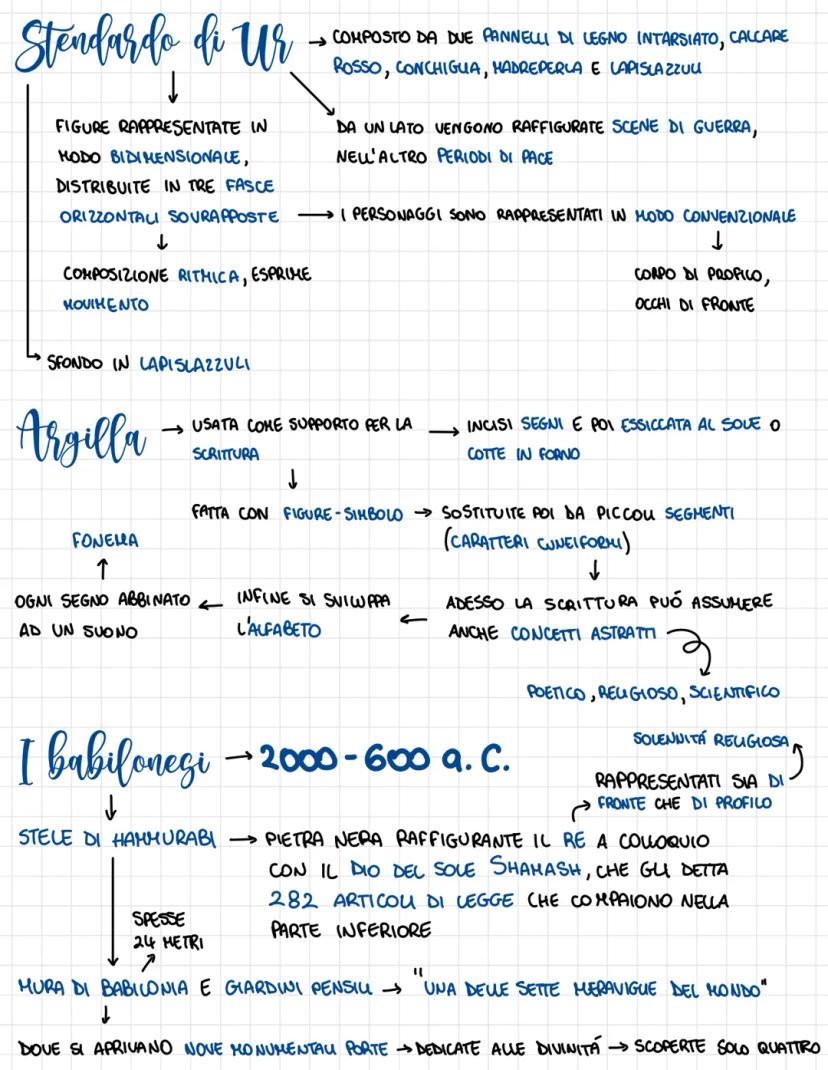 Stendardo di Ur → COMPOSTO DA DUE PANNELLI DI LEGNO INTARSIATO, CALCARE
ROSSO, CONCHIGLIA, MADREPERLA E LAPISLAZZULI
FIGURE RAPPRESENTATE IN
MODO BIDIMENSIONALE,
DISTRIBUITE IN TRE FASCE
ORIZZONTALI SOVRAPPOSTE → I PERSONAGGI SONO RAPPRESENTATI IN MODO CONVENZIONALE
DA UN LATO VENGONO RAFFIGURATE SCENE DI GUERRA,
NELL'ALTRO PERIODI DI PACE
COMPOSIZIONE RITMICA, ESPRIME
MOVIMENTO
CORPO DI PROFILO,
OCCHI DI FRONTE
SFONDO IN LAPISLAZZULI
Argilla → USATA COME SUPPORTO PER LA
SCRITTURA
→ INCISI SEGNI E POI ESSICCATA AL SOLE O
COTTE IN FORNO
FATTA CON FIGURE-SIMBOLO → SOSTITUITE POI DA PICCOLI SEGMENTI
(CARATTERI CUNEIFORMI)
ADESSO LA SCRITTURA PUÓ ASSUMERE
ANCHE CONCETTI ASTRATTI
POETICO, RELIGIOSO, SCIENTIFICO
INFINE SI SVILUPPA
L'ALFABETO
OGNI SEGNO ABBINATO
AD UN SUONO
FONEMA
I babilonesi → 2000-600 a.C.
STELE DI HAMMURABI → PIETRA NERA RAFFIGURANTE IL RE A COLLOQUIO
CON IL DIO DEL SOLE SHAMASH, CHE GLI DETTA
282 ARTICOLI DI LEGGE CHE COMPAIONO NELLA
PARTE INFERIORE
RAPPRESENTATI SIA DI
FRONTE CHE DI PROFILO
SOLENNITÁ RELIGIOSA
SPESSE
24 METRI
MURA DI BABILONIA E GIARDINI PENSILI → "UNA DELLE SETTE MERAVIGLIE DEL MONDO"
DOVE SI APRIVANO NOVE MONUMENTALI PORTE → DEDICATE ALLE DIVINITÁ → SCOPERTE SOLO QUATTRO